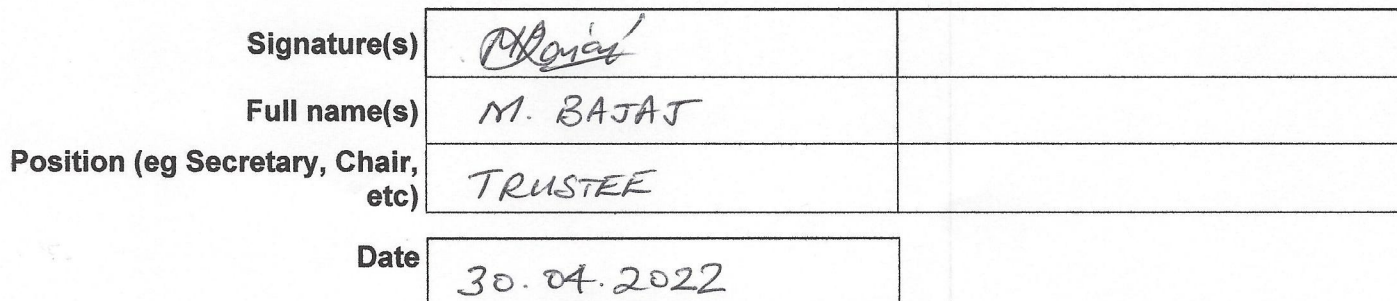 Signature(s)
Full name(s) M. BAJAJ
Position (eg Secretary, Chair,
etc) TRUSTEE
Date 30.04.2022